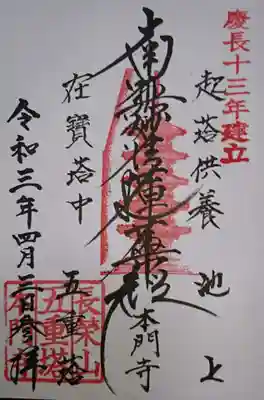 慶長十三年建立
起塔供養
池上
南無妙法蓮華経
本門寺
在寶塔中
五重塔
令和三年四月三日
拝
長榮山
五重塔
本門寺